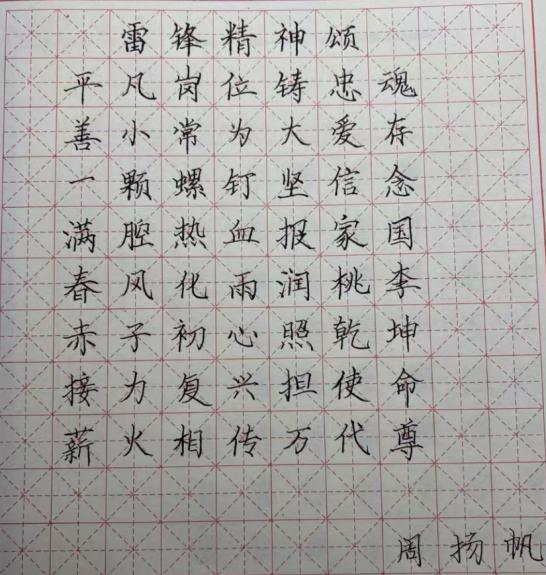 雷锋精神颂
平凡岗位铸忠魂
善小常为大爱存
一颗螺钉坚信念
满腔热血报家国
春风化雨润桃李
赤子初心照乾坤
接力复兴担使命
薪火相传万代尊
周扬帆